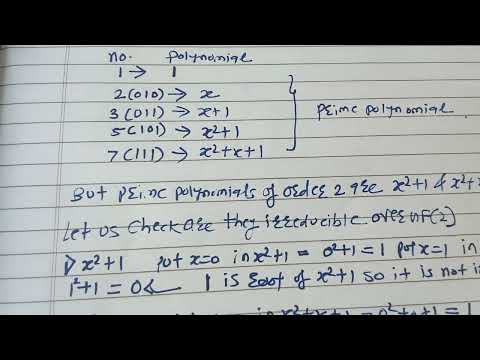 no. polynomial
1 → 1
2(010) → x
3(011) → x+1
5(101) → x²+1
7(111) → x²+x+1
prime polynomial.
But prime polynomials of order 2 are x²+1 & x²+
Let us check are they irreducible over
1> x²+1 put x=0 in x²+1 = 0²+1=1 put x=1 in
1²+1=0 1 is root of x²+1 so it is not i
in x²+x+1 = 0²+0+1=1